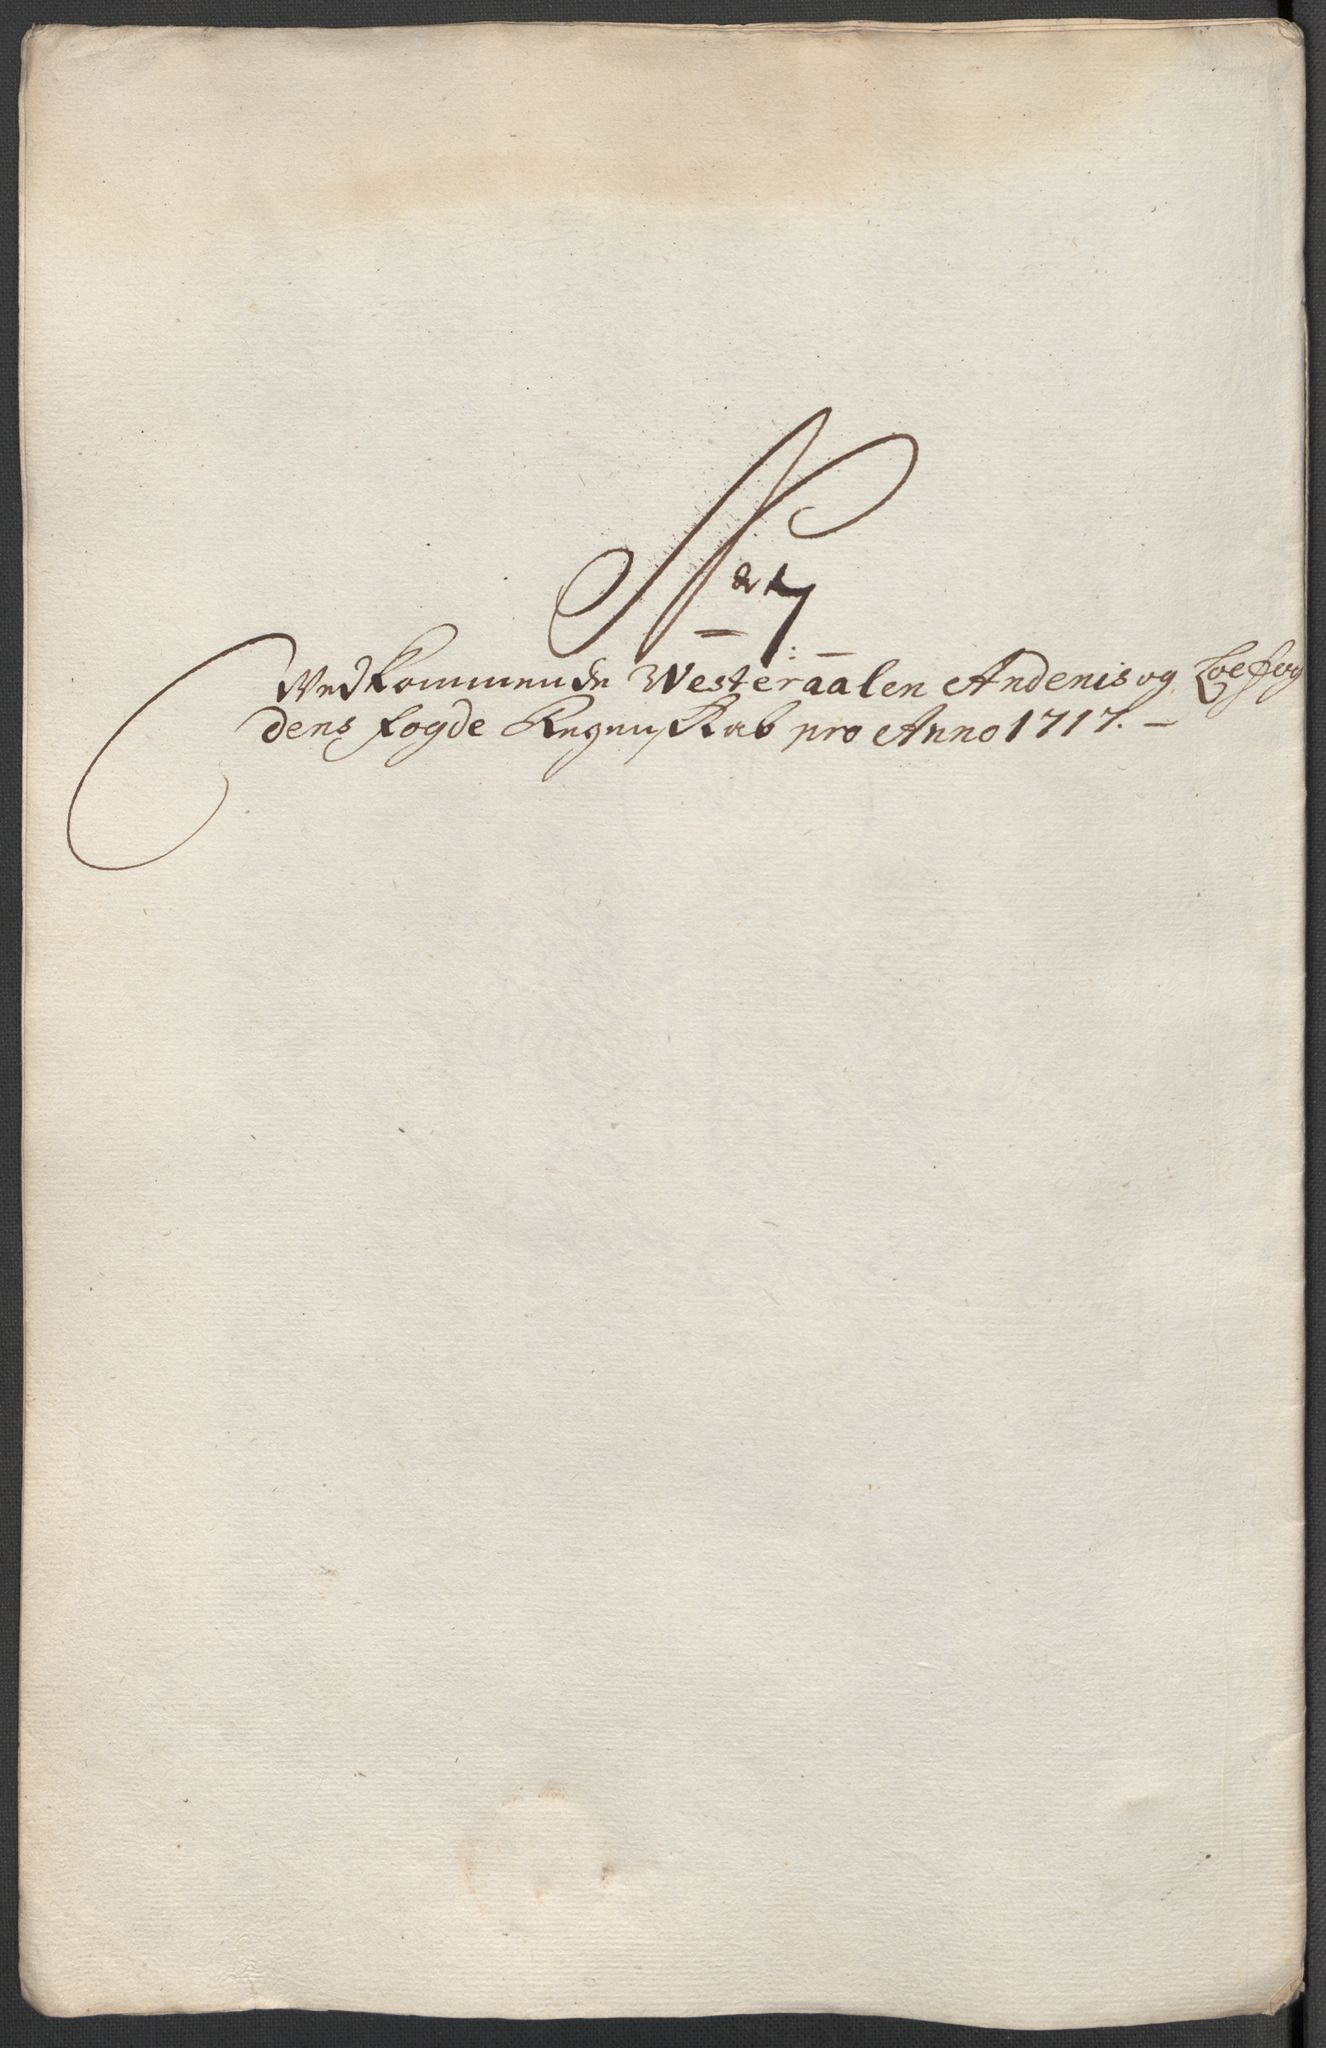 No 7
Vedkommende Westeraalen Andenis og Loefog
dens fogde Regenskab pro Anno 1717. –